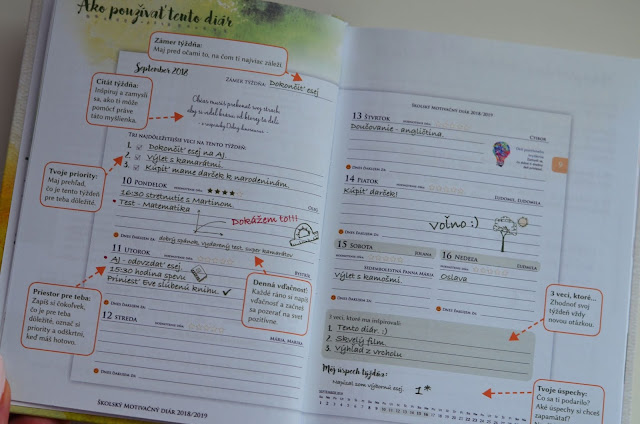 Ako používať tento diár
Zámer týždňa:
Maj pred očami to, na čom ti najviac záleží
September 2018
ZÁMER TÝŽDŇA: Dokončiť esej
Citát týždňa:
Inšpiruj a zamysli
sa, ako ti môže
pomôcť práve
táto myšlienka.
Občas musíš prekonať svoj strach,
aby si videl krásu, od ktorej ťa delí.
TRI NAJDÔLEŽITEJŠIE VECI NA TENTO TÝŽDEŇ:
1. Dokončiť esej na AJ.
2. Výlet s kamarátmi.
3. Kúpiť mame darček k narodeninám.
Tvoje priority:
Maj prehľad,
čo je tento týždeň
pre teba dôležité.
10 PONDELOK
16:30 stretnutie s Martinom.
• Test - Matematika
Dokážem to!!!
DNES ĎAKUJEM ZA: dobrý spánok, vydarený test, super kamarátov
11 UTOROK
BYSTRÍK
• AJ - odovzdať esej
15:30 hodina spevu
Priniesť Eve sľúbenú knihu.
DNES ĎAKUJEM ZA:
Denná vďačnosť:
Každé ráno si napíš
vďačnosť a začneš
sa pozerať na svet
pozitívne.
Priestor pre teba:
Zapíš si čokoľvek,
čo je pre teba
dôležité, označ si
priority a odškrtni,
keď máš hotovo.
12 STREDA
MÁRIA, MÁRIA
DNES ĎAKUJEM ZA:
ŠKOLSKÝ MOTIVAČNÝ DIÁR 2018/2019
ŠKOLSKÝ MOTIVAČNÝ DIÁR 2018/2019
13 ŠTVRTOK
CTIBOR
Doučovanie - angličtina.
DNES ĎAKUJEM ZA:
9
14 PIATOK
Kúpiť darček!
voľno :)
DNES ĎAKUJEM ZA:
15 SOBOTA
JOLANA
SEDEMBOLESTNÁ PANNA MÁRIA
Výlet s kamošmi.
DNES ĎAKUJEM ZA:
16 NEDEĽA
ĽUDMILA
Oslava
DNES ĎAKUJEM ZA:
3 veci, ktoré...
Zhodnoť svoj
týždeň vždy
novou otázkou.
3 veci, ktoré ma inšpirovali:
1. Tento diár. :)
2. Skvelý film
3. Výhľad z vrcholu
Môj úspech týždňa:
Napísal som výbornú esej.
1*
Tvoje úspechy:
Čo sa ti podarilo?
Aké úspechy si chceš
zapamätať?
SEPTEMBER